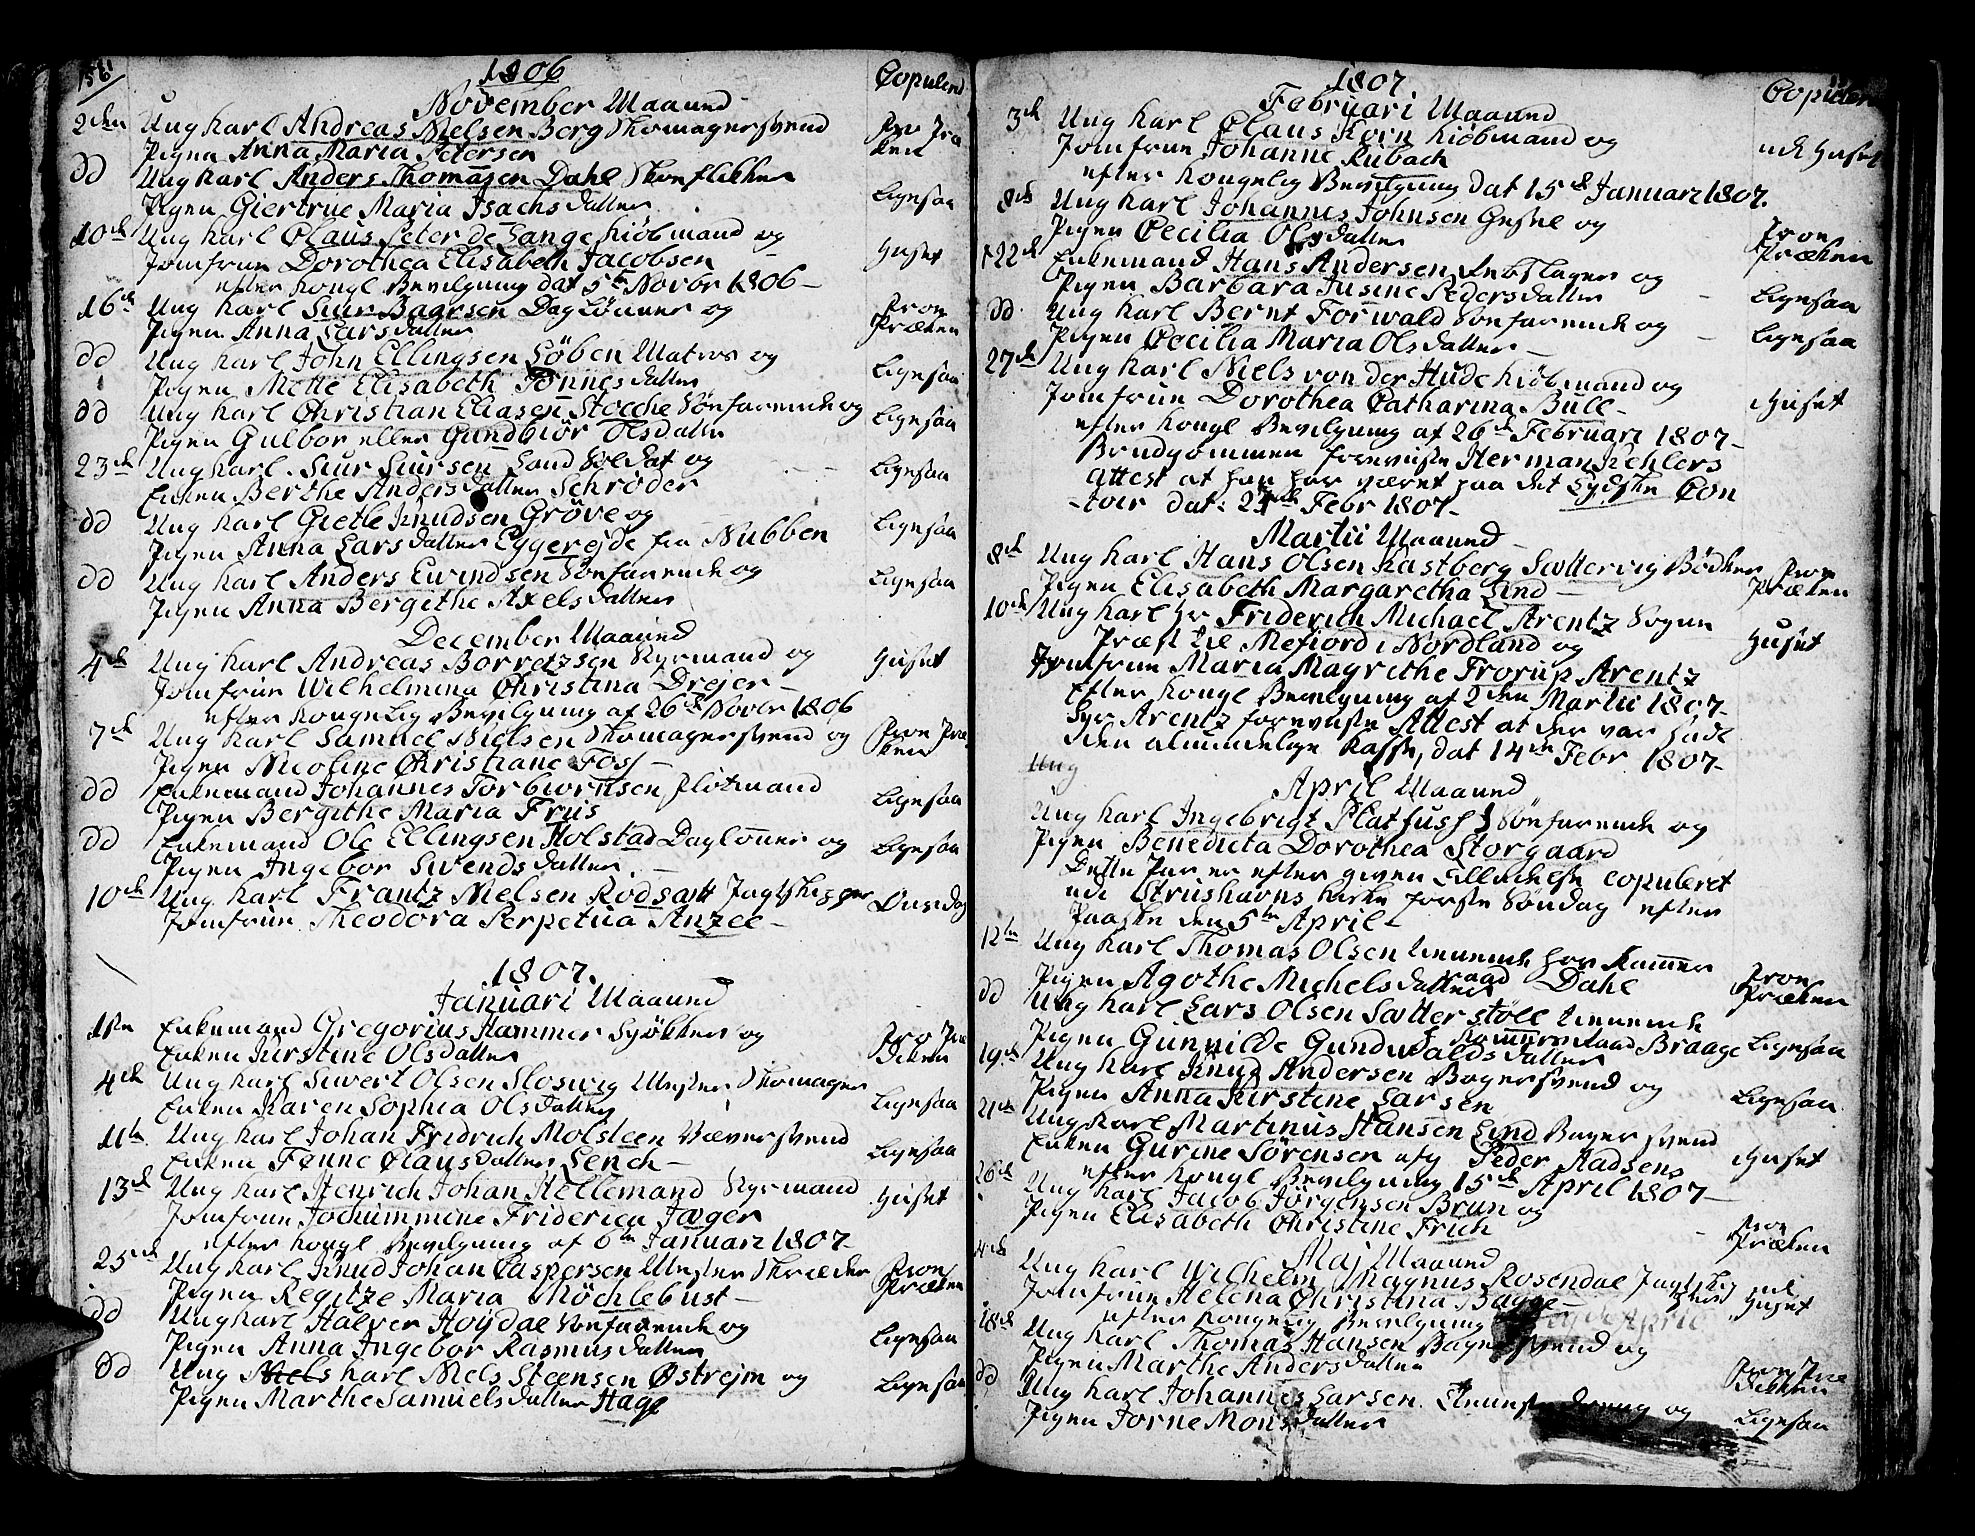 156
1806
Copulerd
November Maaned
2den Ung Karl Andreas Nielsen Berg Skomagersvend
Pigen Anna Maria Petersen
Pro Præ
ken
dd Ung Karl Anders Thomasen Dahl Skoeflikker
Pigen Giertrue Maria Isachsdatter
Ligesaa
10de Ung Karl Claus Peter de Lange Kiøbmand og
Jomfrue Dorothea Elisabeth Jacobsen
efter Kongl Bevilgning dat 5te Novbr 1806
Huset
16de Ung Karl Siur Baarsen Dagløner og
Pigen Anna Larsdatter
Pron
Præken
dd Ung Karl John Ellingsen Løben Matros og
Pigen Mette Elisabeth Tønnesdatter
Ligesaa
dd Ung Karl Christian Eliasen Stocche Søefarende og
Pigen Gulbor eller Gundbiør Olsdatter
Ligesaa
23de Ung Karl Siur Siursen Land Soldat og
Enken Berthe Andersdatter Schrøder
Ligesaa
dd Ung Karl Gietle Knudsen Grøve og
Pigen Anna Larsdatter Eggerejde fra Nubben
Ligesaa
dd Ung Karl Anders Ewindsen Søefarende og
Pigen Anna Bergithe Axelsdatter
Ligesaa
December Maaned
4de Ung Karl Andreas Borretzsen Styrmand og
Jomfrue Wilhelmina Christina Drejer
efter Kongelig Bevilgning af 26de Novbr 1806
Huset
7de Ung Karl Samuel Nielsen Skomagersvend og
Pigen Nicoline Christiane Foss
Pron Præ
ken
dd Enkemand Johannes Torbiørnsen Flotmand
Pigen Bergithe Maria Friis
Ligesaa
dd Enkemand Ole Ellingsen Holstad Dagløner og
Pigen Ingebor Swendsdatter
Ligesaa
10de Ung Karl Frantz Nielsen Rødsatt Jagtskipper
Jomfrue Theodora Perpetua Anzee
Onsdag
1807.
Januari Maaned
1ste Enkemand Gregorius Hammer Snøkker og
Enken Kirstine Olsdatter
Pro Præ
diken
4de Ung Karl Siwert Olsen Sloswig Mester Skomager
Enken Karen Sophia Olsdatter
Ligesaa
11te Ung Karl Johan Fridrich Molsteen Væversvend
Enken Fenne Clausdatter Lench
Ligesaa
13de Ung Karl Henrich Johan Hellemand Styrmand
Jomfrue Jochummine Friderica Jæger
efter Kongl Bevilgning af 6te Januari 1807
Huset
25de Ung Karl Knud Johan Caspersen Mester Skræder
Pigen Regitze Maria Møchlebust
Pron
Præken
dd Ung Karl Halver Høydal Søefarende og
Pigen Anna Ingebor Rasmusdatter
Ligesaa
dd Ung Niels Karl Niels Steensen Østrejm og
Pigen Marthe Samuelsdatter Hage
Ligesaa
1807
Februari Maaned
3de Ung Karl Claus Korn Kiøbmand og
Jomfrue Johanne Rubach
efter Kongelig Bevilgning dat 15de Januari 1807.
udi Huset
8de Ung Karl Johannes Johnsen Gesel og
Pigen Cecilia Olsdatter
Pron
Præken
22de Enkemand Hans Andersen Rebslager og
Pigen Barbara Susine Pedersdatter
Ligesaa
dd Ung Karl Bernt Forwald Søefarende og
Pigen Cecilia Maria Olsdatter
Ligesaa
27de Ung Karl Niels von der Hude Kiøbmand og
Jomfrue Dorothea Catharina Bull
efter Kongl Bevilgning af 26de Februari 1807
Brudgommen foreviiste Herman Kehlers
Attest at han har været paa det Tydske Con
toir dat: Febr 1807
Huset
Martii Maaned
8de Ung Karl Hans Olsen Kastberg Sættervig Bødker
Pigen Elisabeth Margaretha Lind
Pron
Præken
10de Ung Karl Hr Friderich Michael Arentz Sogne
Præst til Mefiord i Nordland og
Jomfrue Maria Magrethe Frorup Arentz
Efter Kongl Bevilgning af 2den Martii 1807
Hr Arentz foreviiste Attest at der var
den almindelige Kasse, dat 14de Febr 1807
Huset
Ung
April Maaned
Ung Karl Ingebrigt Platfuss Søefarende og
Pigen Benedicta Dorothea Storgaard
Dette Par er efter given Tilladelse copuleret
udi Strushavns Kirke første Søndag efter
Paaske den 5te April
12te Ung Karl Thomas Olsen tienende hos Kammer
raad Dahl
Pigen Agothe Michelsdatter
Pron
Præken
dd Ung Karl Lars Olsen Sætterstøll tienende
Kammerraad Braage
Pigen Gunnilde Gundwaldsdatter
Ligesaa
19de Ung Karl Knud Andersen Bagersvend og
Pigen Anna Kirstine Larsen
Ligesaa
21de Ung Karl Martinus Hansen Lind Bager svend
Enken Gurine Sørensen afg Peder Madsens
efter Kongl Bevilgning 15de April 1807
Huset
26de Ung Karl Jacob Jørgensen Brun og
Pigen Elisabeth Christine Frich
Pron
Præken
Maj Maaned
4de Ung Karl Wilhelm Magnus Rosendal Jagtskip
Jomfrue Helena Christina Bagge
efter Kongelig Bevilgning April
udi
Huset
18de Ung Karl Thomas Hansen Bagersvend og
Pigen Marthe Andersdatter
Pron Præ
dikken
dd Ung Karl Johannes Larsen og
Pigen Jorne Monsdatter
Ligesaa